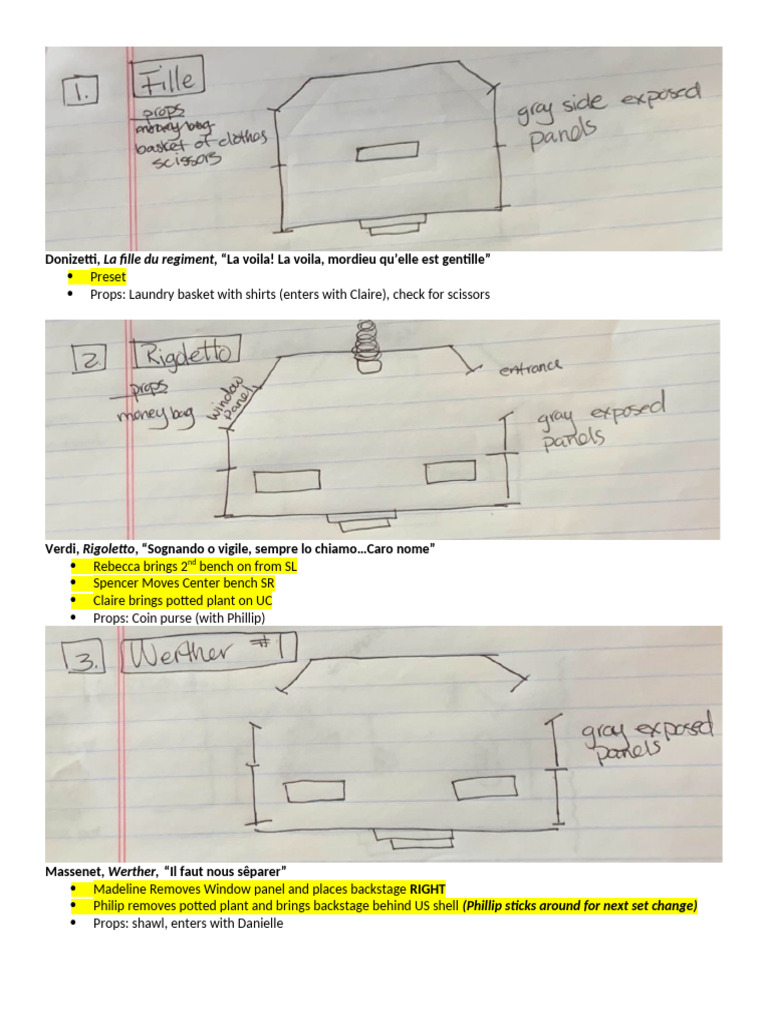 1.
Fille
props
money bag
basket of clothes
scissors
gray side exposed
panels
Donizetti, La fille du regiment, “La voila! La voila, mordieu qu’elle est gentille”
• Preset
• Props: Laundry basket with shirts (enters with Claire), check for scissors
2.
Rigoletto
props
money bag
window
panel
entrance
gray exposed
panels
Verdi, Rigoletto, “Sognando o vigile, sempre lo chiamo…Caro nome”
• Rebecca brings 2nd bench on from SL
• Spencer Moves Center bench SR
• Claire brings potted plant on UC
• Props: Coin purse (with Phillip)
3.
Werther #1
gray exposed
panels
Massenet, Werther, “Il faut nous sêparer”
• Madeline Removes Window panel and places backstage RIGHT
• Philip removes potted plant and brings backstage behind US shell (Phillip sticks around for next set change)
• Props: shawl, enters with Danielle